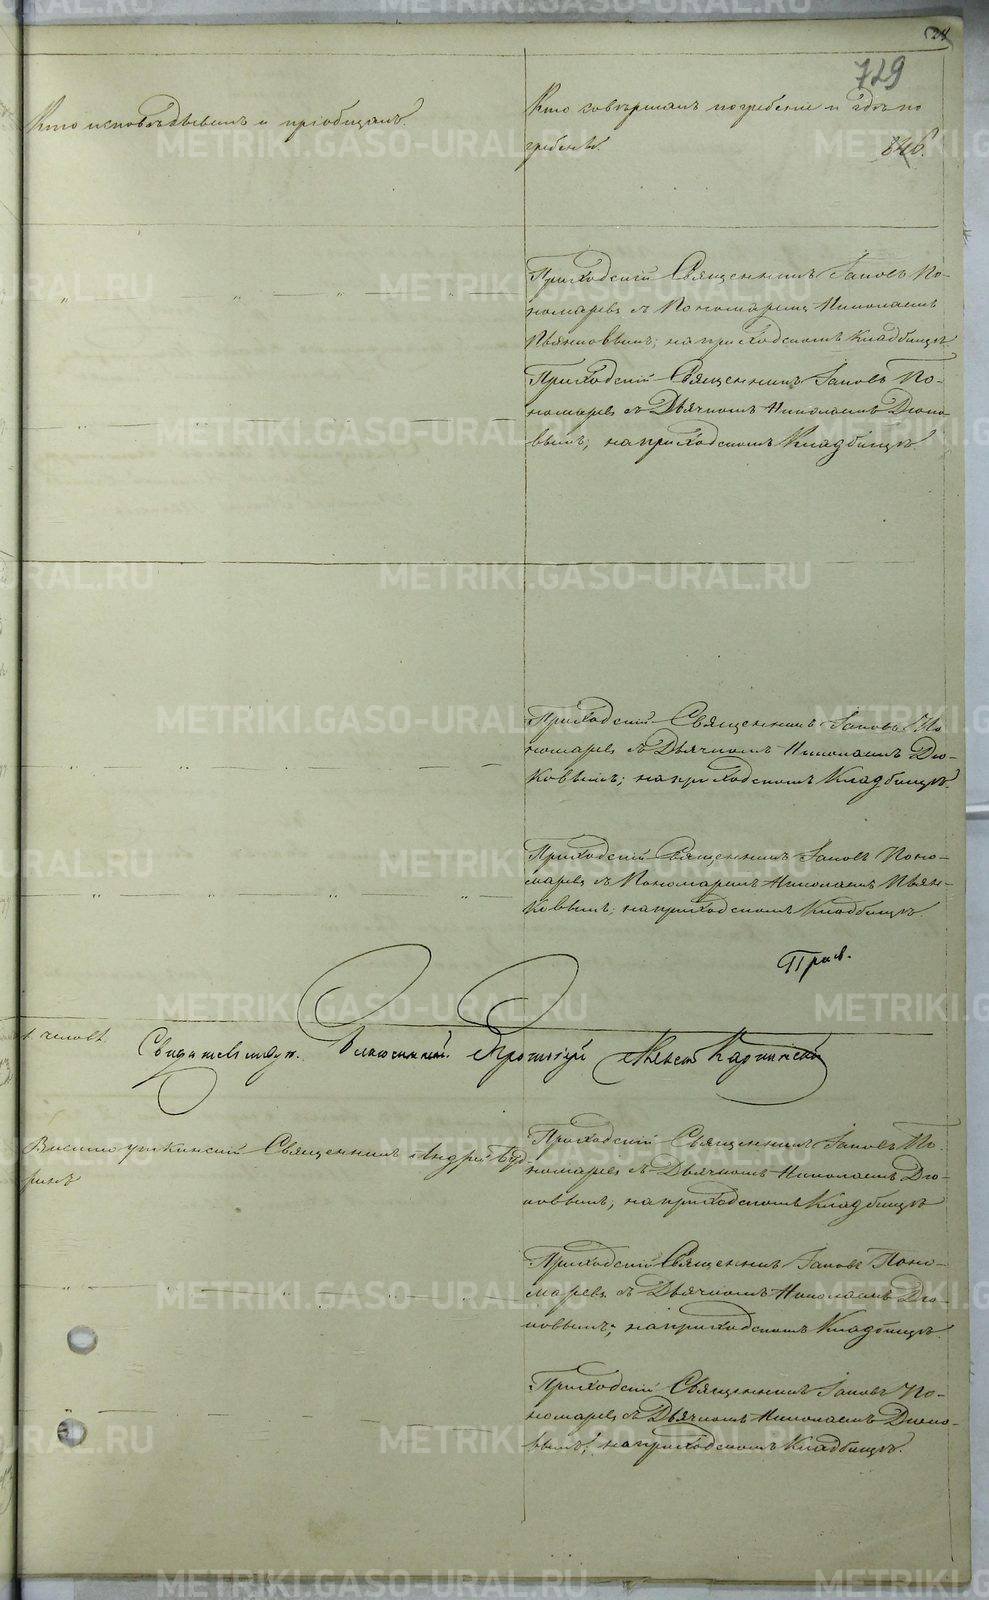 729
Кто исповѣдывалъ и пріобщалъ.
Кто совершалъ погребеніе и гдѣ по
гребенъ.
Приходскій Священникъ Іаковъ По-
номаревъ съ Пономаремъ Николаемъ
Пьянковымъ; на приходскомъ кладбищѣ.
Приходскій Священникъ Іаковъ По-
номаревъ съ Дьячкомъ Николаемъ Дюко-
вымъ; на приходскомъ Кладбищѣ.
Приходскій Священникъ Іаковъ По
номаревъ съ Дьячкомъ Николаемъ Дю-
ковымъ; на приходскомъ Кладбищѣ.
Приходскій Священникъ Іаковъ Поно-
маревъ съ Пономаремъ Николаемъ Пьян-
ковымъ; на приходскомъ Кладбищѣ.
человѣ.
Свидѣтельствов. Благочинный Протоіерей
Приходскій Священникъ Іаковъ По
Висимоуткинскій Священникъ Андрей Буд-
ринъ
номаревъ съ Дьячкомъ Николаемъ Дю-
ковымъ; на приходскомъ Кладбищѣ
Приходскій Священникъ Іаковъ Поно-
маревъ съ Дьячкомъ Николаемъ Дю-
ковымъ; на приходскомъ Кладбищѣ.
Приходскій Священникъ Іаковъ По-
номаревъ съ Дьячкомъ Николаемъ Дюко-
вымъ; на приходскомъ Кладбищѣ.
METRIKI.GASO-URAL.RU